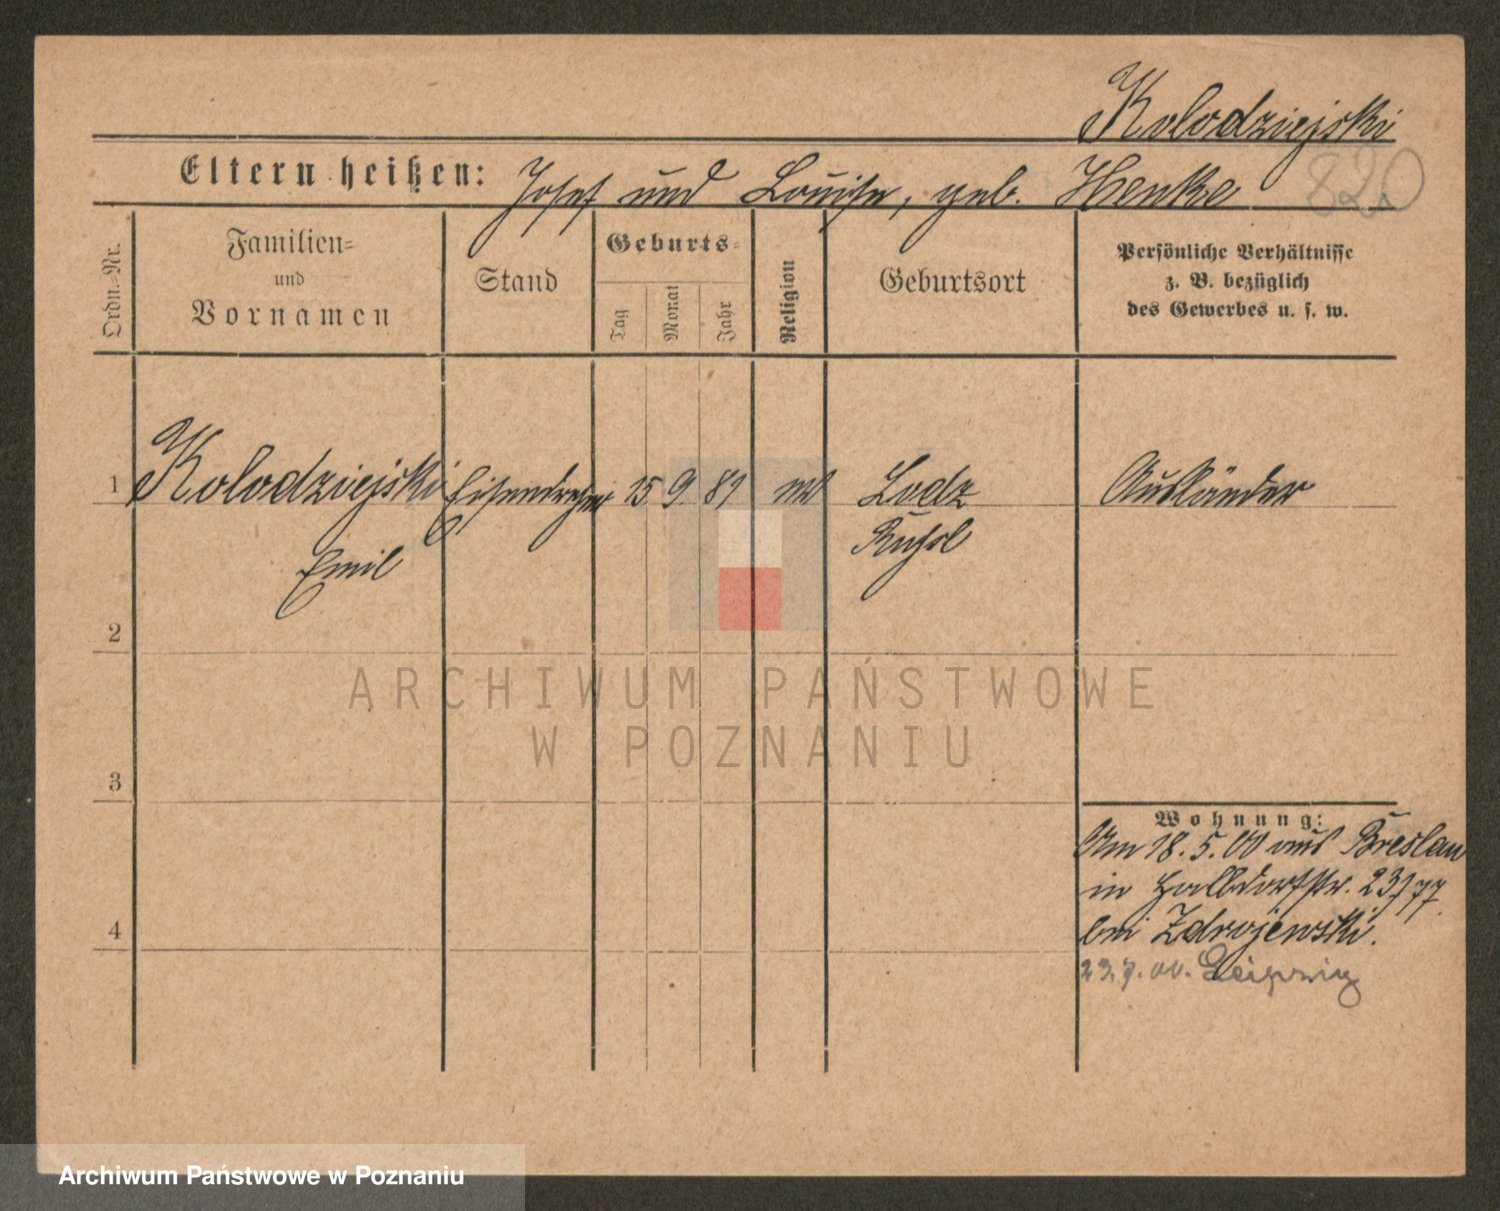 Kolodziejski
820
Eltern heißen: Josef und Louise, geb. Henke
Ordn.-Nr.
Familien-
und
Vornamen
Stand
Geburts-
Tag
Monat
Jahr
Religion
Geburtsort
Persönliche Verhältnisse
z. B. bezüglich
des Gewerbes u. s. w.
1 Kolodziejski Eisendreher 15 9. 81 Lodz Ausländer
Emil Rußl
2
3
4
Wohnung:
Am 18.5.00 aus Breslau
in Halbdorfstr. 23
bei Zdrojewski.
23.7.00. Leipzig
ARCHIWUM PAŃSTWOWE
W POZNANIU
Archiwum Państwowe w Poznaniu